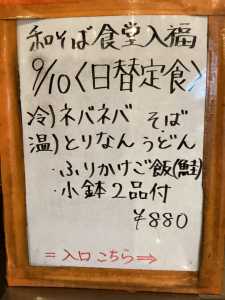 和そば食堂入福
9/10〈日替定食〉
冷)ネバネバ そば
温)とりなん うどん
・ふりかけご飯(鮭)
・小鉢2品付
¥880
=入口こちら⇒